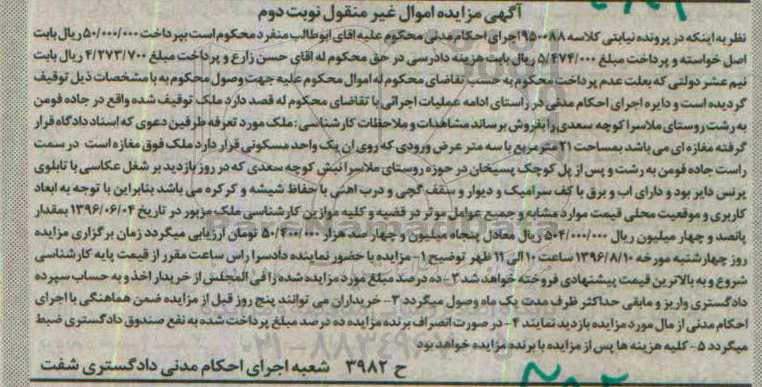 آگهی مزایده اموال غیر منقول نوبت دوم
نظر به اینکه در پرونده نیابتی کلاسه ۹۵۰۰۸۸ اجرای احکام مدنی محکوم علیه اقای ابوطالب منفرد محکوم است بپرداخت ۵۰/۰۰۰/۰۰۰ ریال بابت
اصل خواسته و پرداخت مبلغ ۵/۴۷۴/۰۰۰ ریال بابت هزینه دادرسی در حق محکوم له اقای حسن زارع و پرداخت مبلغ ۴/۲۷۳/۷۰۰ ریال بابت
نیم عشر دولتی که بعلت عدم پرداخت محکوم به حسب تقاضای محکوم له اموال محکوم علیه جهت وصول محکوم به با مشخصات ذیل توقیف
گردیده است و دایره اجرای احکام مدنی در راستای ادامه عملیات اجرائی با تقاضای محکوم له قصد دارد ملک توقیف شده واقع در جاده فومن
به رشت روستای ملاسرا کوچه سعدی را بفروش برساند مشاهدات و ملاحظات کارشناسی : ملک مورد تعرفه طرفین دعوی که اسناد دادگاه قرار
گرفته مغازه ای می باشد بمساحت ۲۱ متر مربع با سه متر عرض ورودی که روی ان یک واحد مسکونی قرار دارد ملک فوق مغازه است در سمت
راست جاده فومن به رشت و پس از پل کوچک پسیخان در حوزه روستای ملاسرا نبش کوچه سعدی که در روز بازدید بر شغل عکاسی با تابلوی
پرنس دایر بود و دارای اب و برق با کف سرامیک و دیوار و سقف گچی و درب اهنی با حفاظ شیشه و کرکره می باشد بنابراین با توجه به ابعاد
کاربری و موقعیت محلی قیمت موارد مشابه و جمیع عوامل موثر در قضیه و کلیه موازین کارشناسی ملک مزبور در تاریخ ۱۳۹۶/۰۶/۰۴ بمقدار
پانصد و چهار میلیون ریال ۵۰۴/۰۰۰/۰۰۰ ریال معادل پنجاه میلیون و چهار صد هزار ۵۰/۴۰۰/۰۰۰ تومان ارزیابی میگردد زمان برگزاری مزایده
روز چهارشنبه مورخه ۱۳۹۶/۸/۱۰ ساعت ۱۰ الی ۱۱ ظهر توضیح ۱- مزایده با حضور نماینده دادسرا راس ساعت مقرر از قیمت پایه کارشناسی
شروع و به بالاترین قیمت پیشنهادی فروخته خواهد شد ۲- ده درصد مبلغ مورد مزایده شده را فی المجلس از خریدار اخذ و به حساب سپرده
دادگستری واریز و مابقی حداکثر ظرف مدت یک ماه وصول میگردد ۳- خریداران می توانند پنج روز قبل از مزایده ضمن هماهنگی با اجرای
احکام مدنی از مال مورد مزایده بازدید نمایند ۴- در صورت انصراف برنده مزایده ده درصد مبلغ پرداخت شده به نفع صندوق دادگستری ضبط
میگردد ۵- کلیه هزینه ها پس از مزایده با برنده مزایده خواهد بود
ح ۳۹۸۲ شعبه اجرای احکام مدنی دادگستری شفت